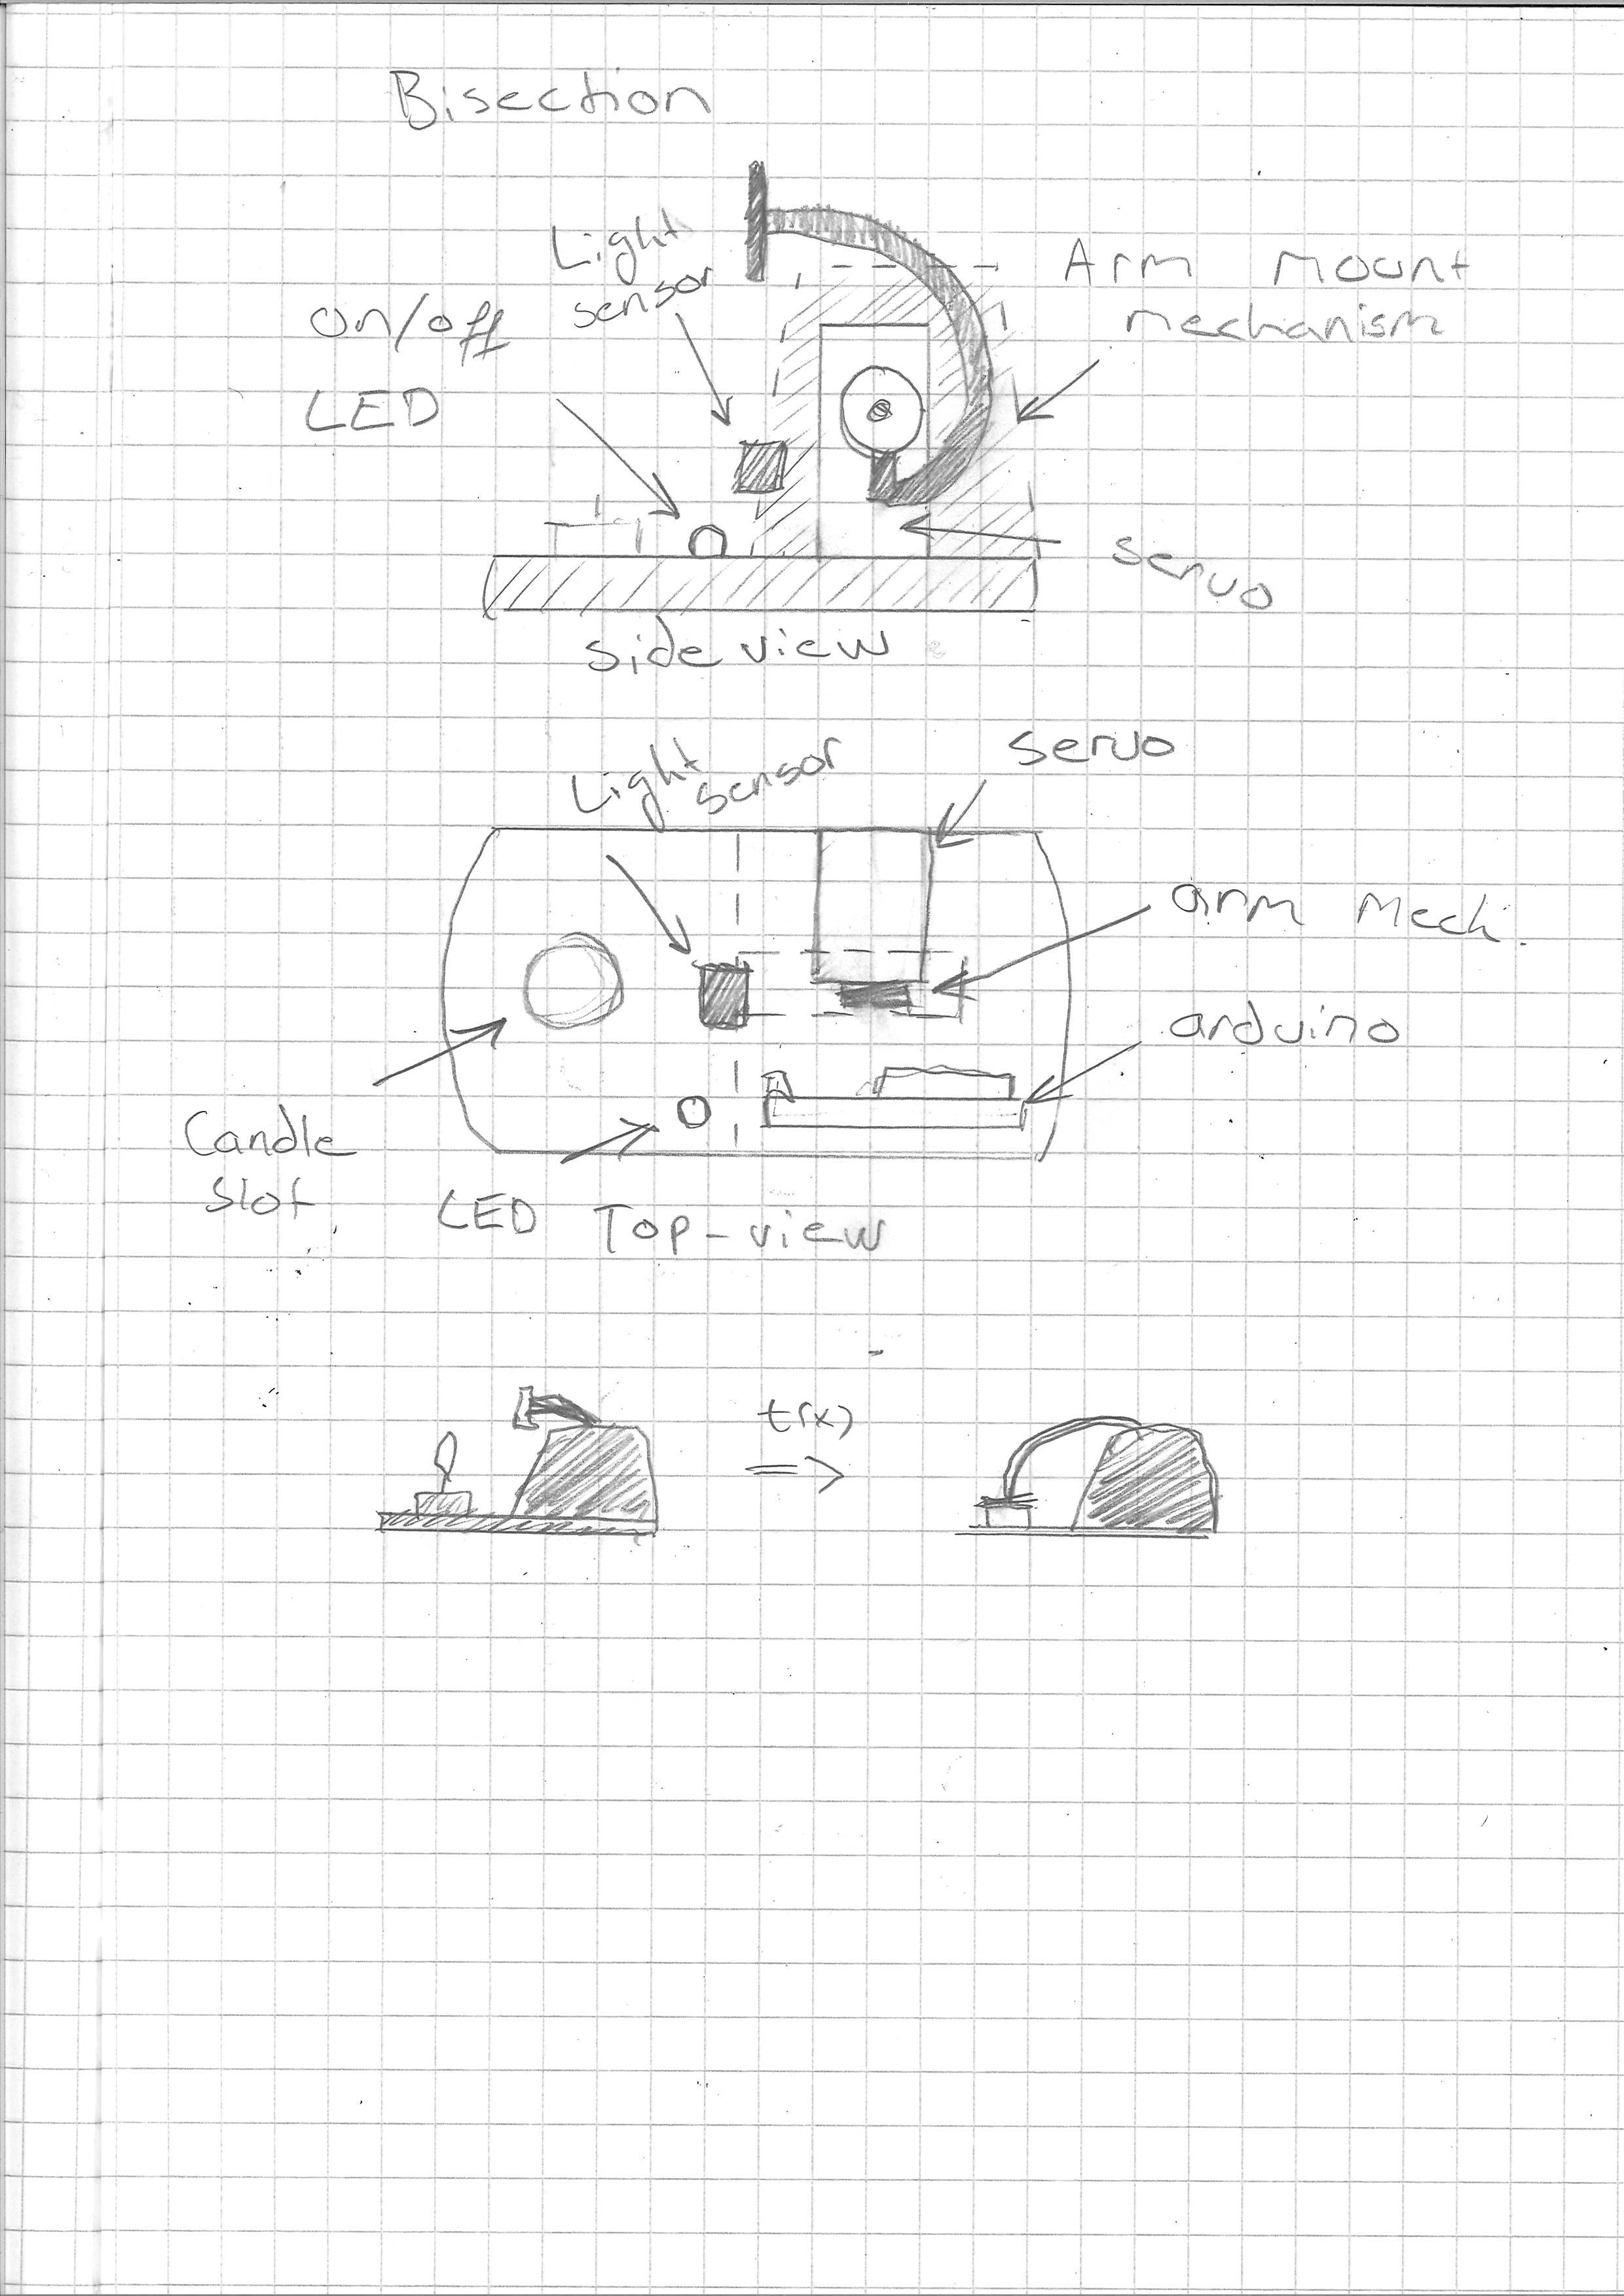 Bisection
Light
sensor
on/off
LED
Arm Mount
mechanism
servo
side view
Light
sensor
servo
arm Mech.
arduino
Candle
slot
LED
Top-view
t(x)